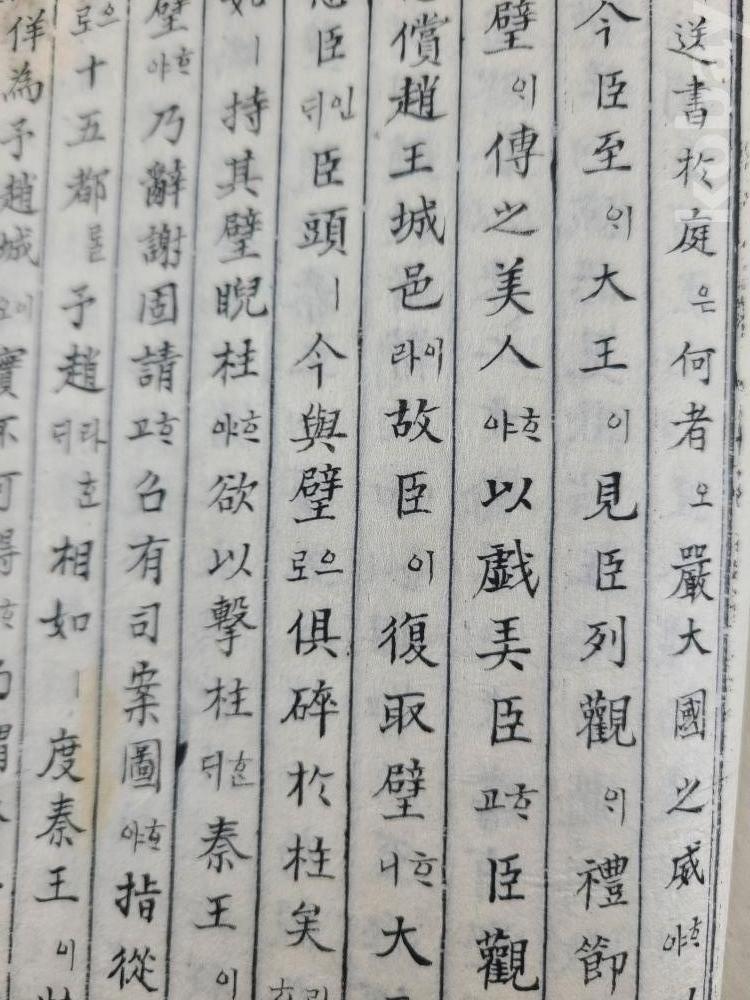 送書於庭은何者오嚴大國之威ᄒᆞ야
今臣至의大王이見臣列觀의禮節
璧의傳之美人ᄒᆞ야以戲弄臣ᄒᆞ고臣觀
償趙王城邑이라故臣이復取璧ᄒᆞ니大
臣인ᄃᆡ臣頭ㅣ今與璧으로俱碎於柱矣
如ㅣ持其璧睨柱ᄒᆞ야欲以擊柱ᄒᆞᆫᄃᆡ秦王이
璧ᄒᆞ야乃辭謝固請ᄒᆞ고召有司案圖ᄒᆞ야指從
으로十五都를予趙라ᄃᆡ호相如ㅣ度秦王이
佯為予趙城이오實不可得
kobay